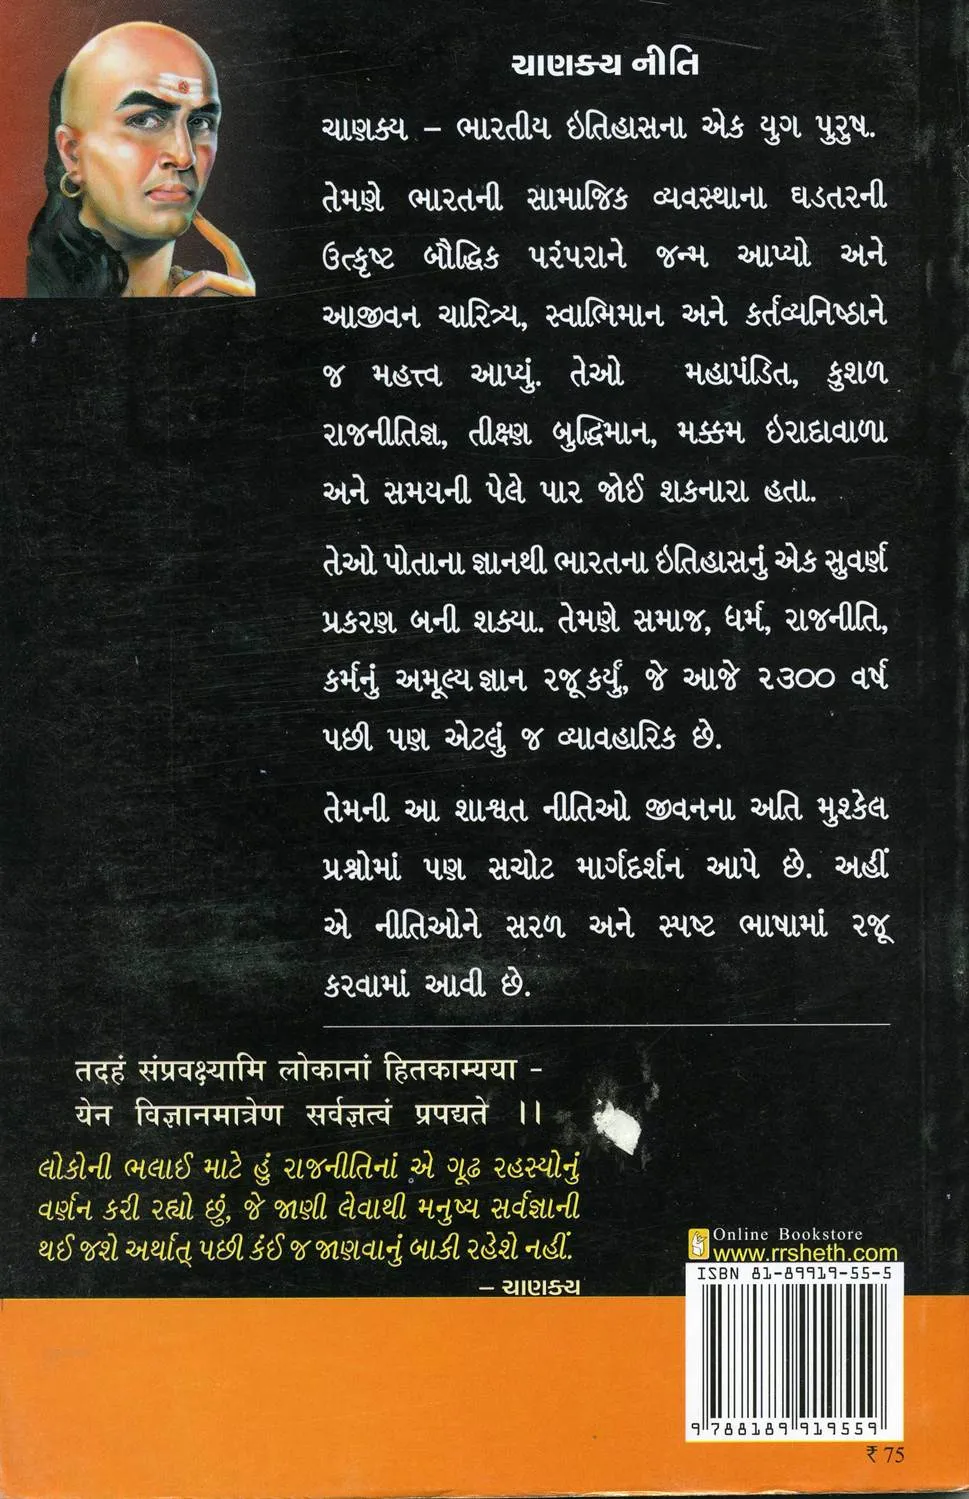 ચાણક્ય નીતિ
ચાણક્ય – ભારતીય ઇતિહાસના એક યુગ પુરુષ.
તેમણે ભારતની સામાજિક વ્યવસ્થાના ઘડતરની
ઉત્કૃષ્ટ બૌદ્ધિક પરંપરાને જન્મ આપ્યો અને
આજીવન ચારિત્ર્ય, સ્વાભિમાન અને કર્તવ્યનિષ્ઠાને
જ મહત્ત્વ આપ્યું. તેઓ મહાપંડિત, કુશળ
રાજનીતિજ્ઞ, તીક્ષ્ણ બુદ્ધિમાન, મક્કમ ઇરાદાવાળા
અને સમયની પેલે પાર જોઈ શકનારા હતા.
તેઓ પોતાના જ્ઞાનથી ભારતના ઇતિહાસનું એક સુવર્ણ
પ્રકરણ બની શક્યા. તેમણે સમાજ, ધર્મ, રાજનીતિ,
કર્મનું અમૂલ્ય જ્ઞાન રજૂ કર્યું, જે આજે ૨૩૦૦ વર્ષ
પછી પણ એટલું જ વ્યાવહારિક છે.
તેમની આ શાશ્વત નીતિઓ જીવનના અતિ મુશ્કેલ
પ્રશ્નોમાં પણ સચોટ માર્ગદર્શન આપે છે. અહીં
એ નીતિઓને સરળ અને સ્પષ્ટ ભાષામાં રજૂ
કરવામાં આવી છે.
तदहं संप्रवक्ष्यामि लोकानां हितकाम्यया -
येन विज्ञानमात्रेण सर्वज्ञत्वं प्रपद्यते ।।
લોકોની ભલાઈ માટે હું રાજનીતિનાં એ ગૂઢ રહસ્યોનું
વર્ણન કરી રહ્યો છું, જે જાણી લેવાથી મનુષ્ય સર્વજ્ઞાની
થઈ જશે અર્થાત્ પછી કંઈ જ જાણવાનું બાકી રહેશે નહીં.
– ચાણક્ય
Online Bookstore
www.rrsheth.com
ISBN 81-89919-55-5
9 788189 919559
₹ 75